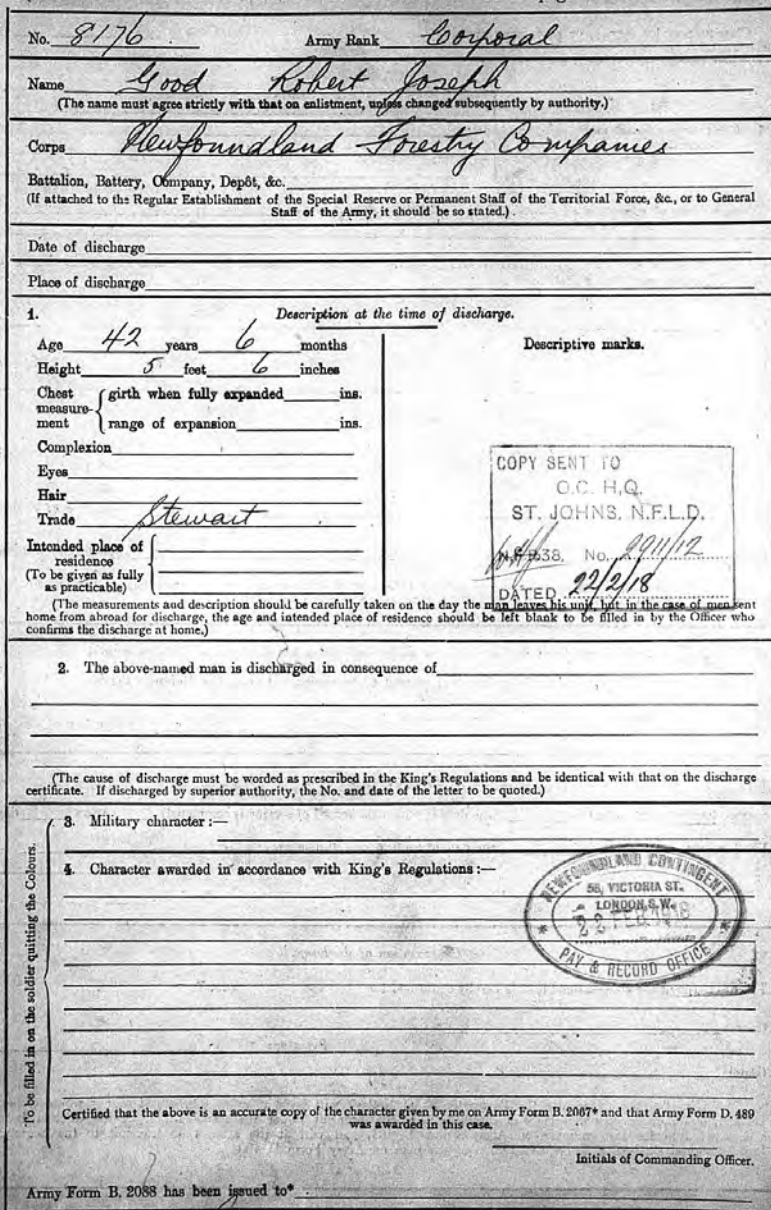 No. 8176 Army Rank Corporal
Name Good Robert Joseph
(The name must agree strictly with that on enlistment, unless changed subsequently by authority.)
Corps Newfoundland Forestry Companies
Battalion, Battery, Company, Depôt, &c.
(If attached to the Regular Establishment of the Special Reserve or Permanent Staff of the Territorial Force, &c., or to General
Staff of the Army, it should be so stated.)
Date of discharge
Place of discharge
1. Description at the time of discharge.
Age 42 years 6 months
Height 5 feet 6 inches
Chest measurement girth when fully expanded ins.
range of expansion ins.
Complexion
Eyes
Hair
Trade Stewart
Intended place of
residence
(To be given as fully
as practicable)
Descriptive marks.
COPY SENT TO
O.C. H.Q.
ST. JOHNS, N.F.L.D.
No. 2911/12
DATED 22/2/18
(The measurements and description should be carefully taken on the day the man leaves his unit, but in the case of men sent
home from abroad for discharge, the age and intended place of residence should be left blank to be filled in by the Officer who
confirms the discharge at home.)
2. The above-named man is discharged in consequence of
(The cause of discharge must be worded as prescribed in the King's Regulations and be identical with that on the discharge
certificate. If discharged by superior authority, the No. and date of the letter to be quoted.)
To be filled in on the soldier quitting the Colours.
3. Military character :—
4. Character awarded in accordance with King's Regulations :—
NEWFOUNDLAND CONTINGENT
58, VICTORIA ST.
LONDON, S.W.
22 FEB 1918
PAY & RECORD OFFICE
Certified that the above is an accurate copy of the character given by me on Army Form B. 2067* and that Army Form D. 489
was awarded in this case.
Initials of Commanding Officer.
Army Form B. 2088 has been issued to*